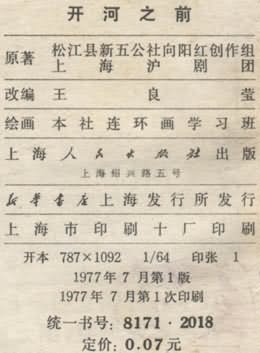 开河之前
原著 松江县新五公社向阳红创作组
上海沪剧团
改编 王良莹
绘画 本社连环画学习班
上海人民出版社出版
上海绍兴路五号
新华书店上海发行所发行
上海市印刷十厂印刷
开本 787×1092 1/64 印张 1
1977年7月第1版
1977年7月第1次印刷
统一书号：8171·2018
定价：0.07元